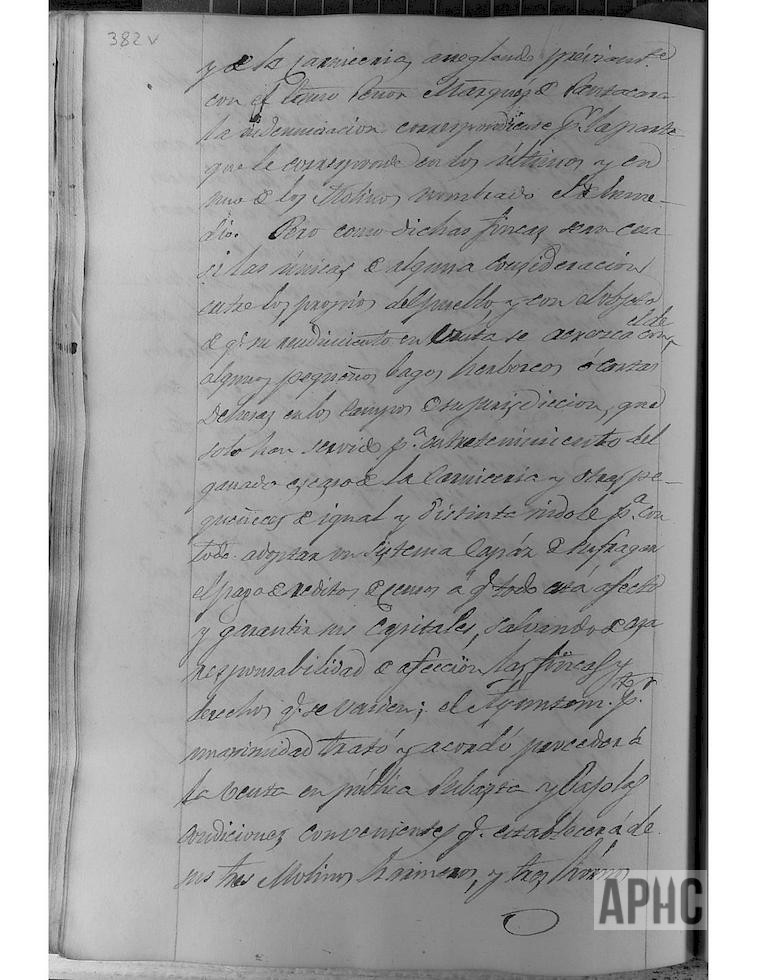 382 v
y de la Carniceria, arreglando préviamte.
con el Señor Marqués de
la indemnizacion correspondiente pr. la parte
que le corresponde en los últimos y en
uno de los Molinos nombrado el de
dio. Pero como dichas fincas, son cua
si las únicas de alguna consideracion
entre los propios del pueblo, y con el objeto
de qe. su rendimiento en venta se acrezca con
el de
algunos pequeños bagos herboreos ó
Dehesas en los Campos de su jurisdiccion, que
solo han servido pa. entretenimiento del
ganado de la Carniceria y otras pe-
queñeces de igual y distinta indole pa. con
todo adoptar un sistema capáz de sufragar
el pago de reditos de censos á qe. todo está afecto
y garantir sus Capitales, salvando de esa
responsabilidad de afeccion las fincas y
derechos qe. se varien; el Ayuntamto. pr.
unanimidad trató y acordó proceder á
la venta en pública subasta y bajo las
condiciones convenientes qe. establecerá de
sus tres Molinos harineros, y tres hornos
APHC